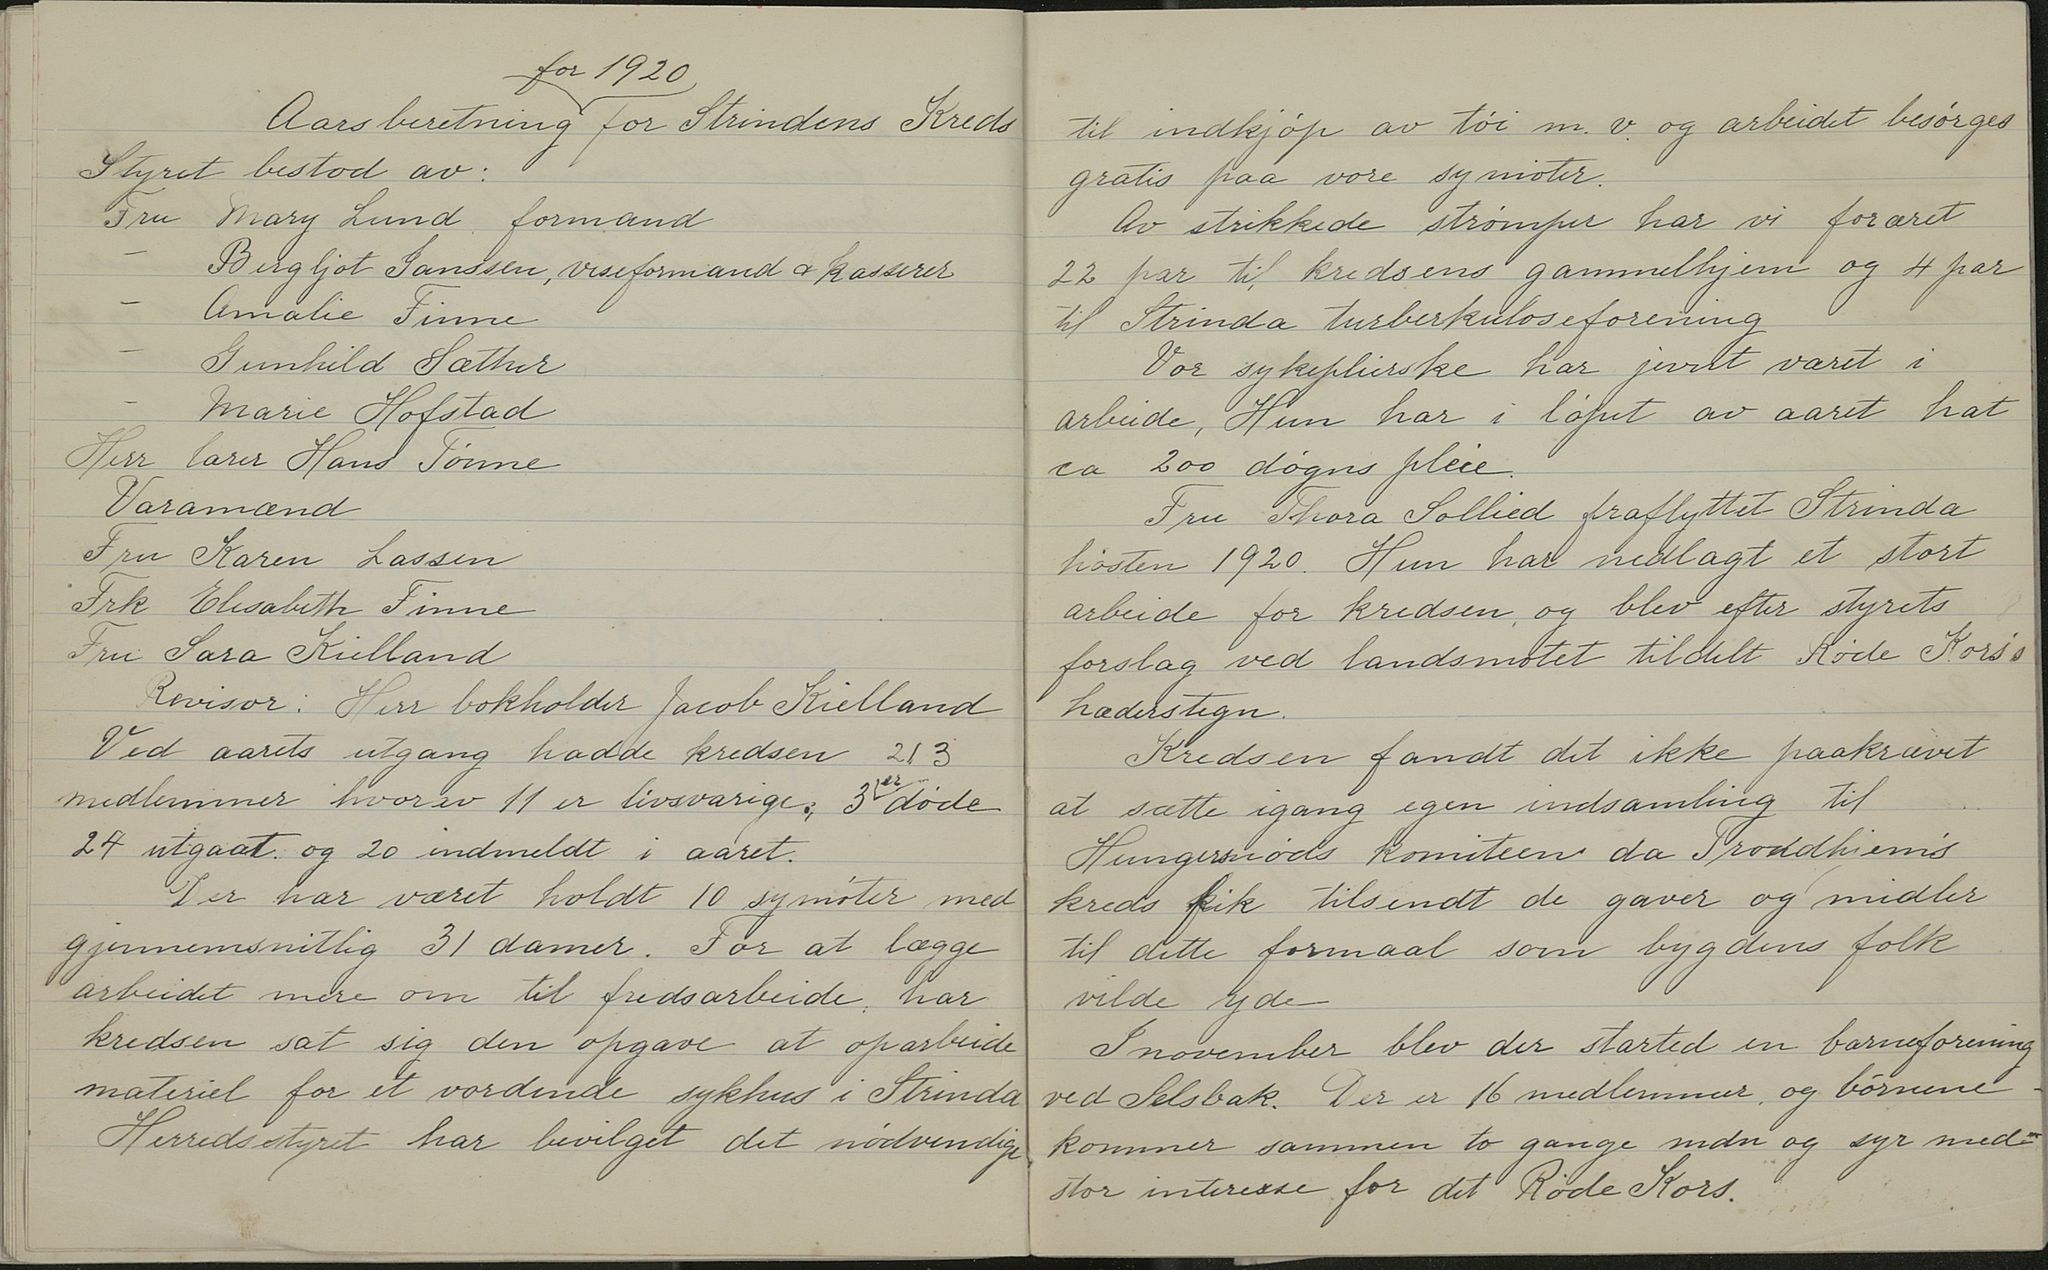 for 1920
Aarsberetning for Strindens Kreds
Styret bestod av:
Fru Mary Lund formand
- Bergljot Janssen, viseformand & kasserer
- Amalie Finne
- Gunhild Sæther
- Marie Hofstad
Herr lærer Hans Tønne
Varamænd
Fru Karen Lassen
Frk Elisabeth Finne
Fru Sara Kielland
Revisor: Herr bokholder Jacob Kielland
Ved aarets utgang hadde kredsen 213
medlemmer hvorav 11 er livsvarige, 3 er døde
24 utgaat. og 20 indmeldt i aaret.
Der har været holdt 10 symøter med
gjennemsnitlig 31 damer. For at lægge
arbeidet mere om til fredsarbeide, har
kredsen sat sig den opgave at oparbeide
materiel for et vordende sykhus i Strinda
Herredsstyret har bevilget det nødvendige
til indkjøp av tøi m. v. og arbeidet besørges
gratis paa vore symøter.
Av strikkede strømper har vi foræret
22 par til kredsens gammelhjem og 4 par
til Strinda turberkuloseforening
Vor sykepleierske har jevnt været i
arbeide, Hun har i løpet av aaret hat
ca 200 døgns pleie.
Fru Thora Sollied fraflyttet Strinda
høsten 1920. Hun har nedlagt et stort
arbeide for kredsen, og blev efter styrets
forslag ved landsmøtet tildelt Røde Kors's
hæderstegn.
Kredsen fandt det ikke paakrævet
at sætte igang egen indsamling til
Hungersnøds komiteen da Trondhjems
kreds fik tilsendt de gaver og midler
til dette formaal som bygdens folk
vilde yde
I november blev der started en barneforening
ved Selsbak. Der er 16 medlemmer, og børnene
kommer sammen to gange mdn og syr med
stor interesse for det Røde Kors.